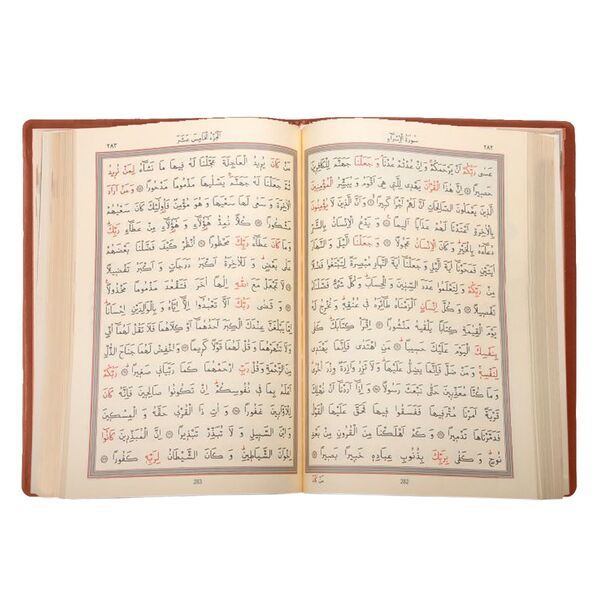 سُورَةُ الْاِسْرَاءِ ٢٨٢
عَسٰى رَبُّكُمْ اَنْ يَرْحَمَكُمْ وَاِنْ عُدْتُمْ عُدْنَا وَجَعَلْنَا جَهَنَّمَ لِلْكَافِرِينَ
حَصِيرًا اِنَّ هٰذَا الْقُرْاٰنَ يَهْدِي لِلَّتِي هِيَ اَقْوَمُ وَيُبَشِّرُ الْمُؤْمِنِينَ
الَّذِينَ يَعْمَلُونَ الصَّالِحَاتِ اَنَّ لَهُمْ اَجْرًا كَبِيرًا وَاَنَّ الَّذِينَ لَا يُؤْمِنُونَ
بِالْاٰخِرَةِ اَعْتَدْنَا لَهُمْ عَذَابًا اَلِيمًا وَيَدْعُ الْاِنْسَانُ بِالشَّرِّ
دُعَاءَهُ بِالْخَيْرِ وَكَانَ الْاِنْسَانُ عَجُولًا وَجَعَلْنَا الَّيْلَ وَالنَّهَارَ
اٰيَتَيْنِ فَمَحَوْنَا اٰيَةَ الَّيْلِ وَجَعَلْنَا اٰيَةَ النَّهَارِ مُبْصِرَةً لِتَبْتَغُوا فَضْلًا
مِنْ رَبِّكُمْ وَلِتَعْلَمُوا عَدَدَ السِّنِينَ وَالْحِسَابَ وَكُلَّ شَيْءٍ فَصَّلْنَاهُ
تَفْصِيلًا وَكُلَّ اِنْسَانٍ اَلْزَمْنَاهُ طَائِرَهُ فِي عُنُقِهِ وَنُخْرِجُ لَهُ
يَوْمَ الْقِيٰمَةِ كِتَابًا يَلْقٰيهُ مَنْشُورًا اِقْرَأْ كِتَابَكَ كَفٰى
بِنَفْسِكَ الْيَوْمَ عَلَيْكَ حَسِيبًا مَنِ اهْتَدٰى فَاِنَّمَا يَهْتَدِي
لِنَفْسِهِ وَمَنْ ضَلَّ فَاِنَّمَا يَضِلُّ عَلَيْهَا وَلَا تَزِرُ وَازِرَةٌ وِزْرَ اُخْرٰى
وَمَا كُنَّا مُعَذِّبِينَ حَتّٰى نَبْعَثَ رَسُولًا وَاِذَا اَرَدْنَا اَنْ نُهْلِكَ
قَرْيَةً اَمَرْنَا مُتْرَفِيهَا فَفَسَقُوا فِيهَا فَحَقَّ عَلَيْهَا الْقَوْلُ
فَدَمَّرْنَاهَا تَدْمِيرًا وَكَمْ اَهْلَكْنَا مِنَ الْقُرُونِ مِنْ بَعْدِ
نُوحٍ وَكَفٰى بِرَبِّكَ بِذُنُوبِ عِبَادِهِ خَبِيرًا بَصِيرًا
مَنْ كَانَ
282
اَلْجُزْءُ الْخَامِسَ عَشَرَ ٢٨٣
مَنْ كَانَ يُرِيدُ الْعَاجِلَةَ عَجَّلْنَا لَهُ فِيهَا مَا نَشَاءُ لِمَنْ نُرِيدُ
ثُمَّ جَعَلْنَا لَهُ جَهَنَّمَ يَصْلٰيهَا مَذْمُومًا مَدْحُورًا وَمَنْ اَرَادَ
الْاٰخِرَةَ وَسَعٰى لَهَا سَعْيَهَا وَهُوَ مُؤْمِنٌ فَاُولٰئِكَ كَانَ سَعْيُهُمْ
مَشْكُورًا كُلًّا نُمِدُّ هٰؤُلَاءِ وَهٰؤُلَاءِ مِنْ عَطَاءِ رَبِّكَ
وَمَا كَانَ عَطَاءُ رَبِّكَ مَحْظُورًا اُنْظُرْ كَيْفَ فَضَّلْنَا بَعْضَهُمْ
عَلٰى بَعْضٍ وَلَلْاٰخِرَةُ اَكْبَرُ دَرَجَاتٍ وَاَكْبَرُ تَفْضِيلًا
لَا تَجْعَلْ مَعَ اللّٰهِ اِلٰهًا اٰخَرَ فَتَقْعُدَ مَذْمُومًا مَخْذُولًا
وَقَضٰى رَبُّكَ اَلَّا تَعْبُدُوا اِلَّا اِيَّاهُ وَبِالْوَالِدَيْنِ اِحْسَانًا
اِمَّا يَبْلُغَنَّ عِنْدَكَ الْكِبَرَ اَحَدُهُمَا اَوْ كِلَاهُمَا فَلَا تَقُلْ لَهُمَا اُفٍّ
وَلَا تَنْهَرْهُمَا وَقُلْ لَهُمَا قَوْلًا كَرِيمًا وَاخْفِضْ لَهُمَا جَنَاحَ الذُّلِّ
مِنَ الرَّحْمَةِ وَقُلْ رَبِّ ارْحَمْهُمَا كَمَا رَبَّيَانِي صَغِيرًا رَبُّكُمْ
اَعْلَمُ بِمَا فِي نُفُوسِكُمْ اِنْ تَكُونُوا صَالِحِينَ فَاِنَّهُ كَانَ
لِلْاَوَّابِينَ غَفُورًا وَاٰتِ ذَا الْقُرْبٰى حَقَّهُ وَالْمِسْكِينَ
وَابْنَ السَّبِيلِ وَلَا تُبَذِّرْ تَبْذِيرًا اِنَّ الْمُبَذِّرِينَ كَانُوا
اِخْوَانَ الشَّيَاطِينِ وَكَانَ الشَّيْطَانُ لِرَبِّهِ كَفُورًا
283